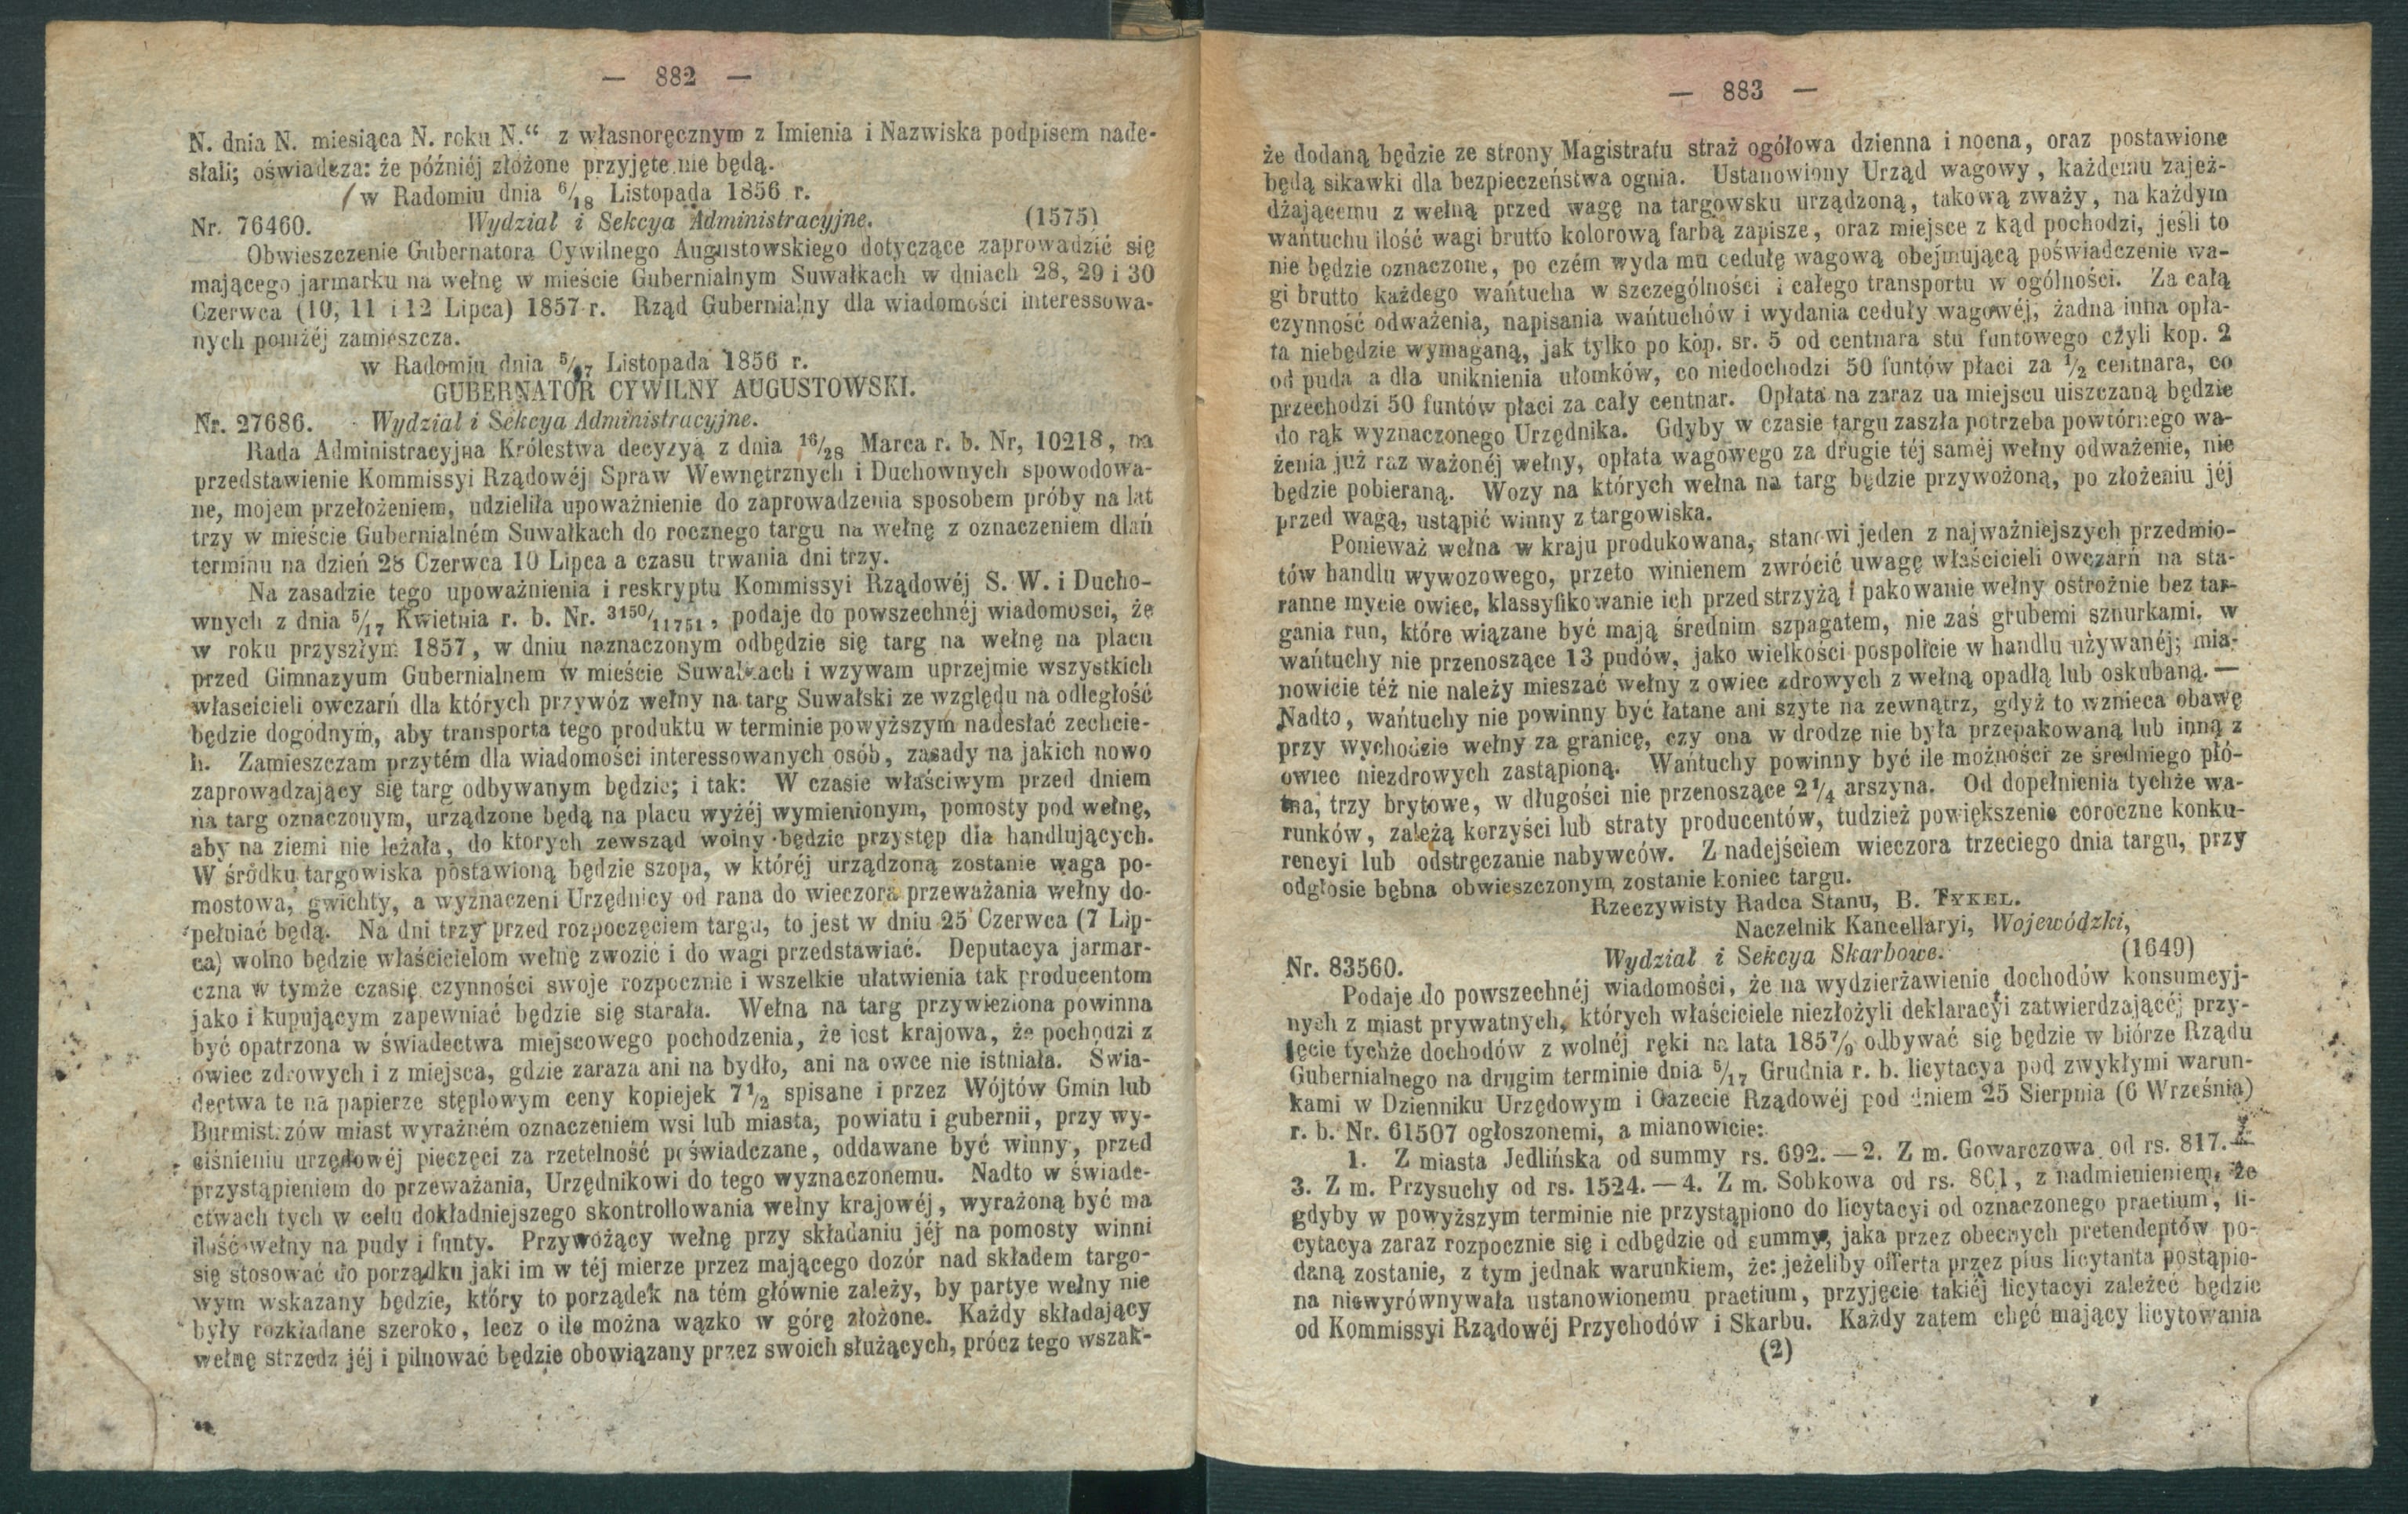 — 882 —
N. dnia N. miesiąca N. roku N.“ z własnoręcznym z Imienia i Nazwiska podpisem nade-
słali; oświadcza: że późniéj złożone przyjęte nie będą.
w Radomiu dnia 6/18 Listopada 1856 r.
Nr. 76460. Wydział i Sekcya Administracyjne. (1575)
Obwieszczenie Gubernatora Cywilnego Augustowskiego dotyczące zaprowadzić się
mającego jarmarku na wełnę w mieście Gubernialnym Suwałkach w dniach 28, 29 i 30
Czerwca (10, 11 i 12 Lipca) 1857 r. Rząd Gubernialny dla wiadomości interessowa-
nych poniżéj zamieszcza.
w Radomiu dnia 5/17 Listopada 1856 r.
GUBERNATOR CYWILNY AUGUSTOWSKI.
Nr. 27686. Wydział i Sekcya Administracyjne.
Rada Administracyjna Królestwa decyzyą z dnia 16/28 Marca r. b. Nr, 10218, na
przedstawienie Kommissyi Rządowéj Spraw Wewnętrznych i Duchownych spowodowa-
ne, mojem przełożeniem, udzieliła upoważnienie do zaprowadzenia sposobem próby na lat
trzy w mieście Gubernialném Suwałkach do rocznego targu na wełnę z oznaczeniem dlań
terminu na dzień 28 Czerwca 10 Lipca a czasu trwania dni trzy.
Na zasadzie tego upoważnienia i reskryptu Kommissyi Rządowéj S. W. i Ducho-
wnych z dnia 5/17 Kwietnia r. b. Nr. 3150/11751, podaje do powszechnéj wiadomosci, że
w roku przyszłym 1857, w dniu naznaczonym odbędzie się targ na wełnę na placu
przed Gimnazyum Gubernialnem w mieście Suwałkach i wzywam uprzejmie wszystkich
właścicieli owczarń dla których przywóz wełny na targ Suwałski ze względu na odległość
będzie dogodnym, aby transporta tego produktu w terminie powyższym nadesłać zechcie-
li. Zamieszczam przytém dla wiadomości interessowanych osób, zasady na jakich nowo
zaprowadzający się targ odbywanym będzie; i tak: W czasie właściwym przed dniem
na targ oznaczonym, urządzone będą na placu wyżéj wymienionym, pomosty pod wełnę,
aby na ziemi nie leżała, do ktorych zewsząd wolny będzie przystęp dla handlujących.
W środku targowiska postawioną będzie szopa, w któréj urządzoną zostanie waga po-
mostowa, gwichty, a wyznaczeni Urzędnicy od rana do wieczora przeważania wełny do-
pełniać będą. Na dni trzy przed rozpoczęciem targu, to jest w dniu 25 Czerwca (7 Lip-
ca) wolno będzie właścicielom wełnę zwozić i do wagi przedstawiać. Deputacya jarmar-
czna w tymże czasię czynności swoje rozpocznie i wszelkie ułatwienia tak producentom
jako i kupującym zapewniać będzie się starała. Wełna na targ przywieziona powinna
być opatrzona w świadectwa miejscowego pochodzenia, że jest krajowa, że pochodzi z
owiec zdrowych i z miejsca, gdzie zaraza ani na bydło, ani na owce nie istniała. Świa-
dectwa te na papierze stęplowym ceny kopiejek 7 1/2 spisane i przez Wójtów Gmin lub
Burmistrzów miast wyraźném oznaczeniem wsi lub miasta, powiatu i gubernii, przy wy-
ciśnieniu urzędowéj pieczęci za rzetelność poświadczane, oddawane być winny, przed
przystąpieniem do przeważania, Urzędnikowi do tego wyznaczonemu. Nadto w świade-
ctwach tych w celu dokładniejszego skontrollowania wełny krajowéj, wyrażoną być ma
ilość wełny na pudy i funty. Przywożący wełnę przy składaniu jéj na pomosty winni
się stosować do porządku jaki im w téj mierze przez mającego dozór nad składem targo-
wym wskazany będzie, który to porządek na tém głównie zależy, by partye wełny nie
były rozkładane szeroko, lecz o ile można wązko w górę złożone. Każdy składający
wełnę strzedz jéj i pilnować będzie obowiązany przez swoich służących, prócz tego wszak-
— 883 —
że dodaną będzie ze strony Magistratu straż ogółowa dzienna i nocna, oraz postawione
będą sikawki dla bezpieczeństwa ognia. Ustanowiony Urząd wagowy, każdemu zajeż-
dżającemu z wełną przed wagę na targowsku urządzoną, takową zważy, na każdym
wańtuchu ilość wagi brutto kolorową farbą zapisze, oraz miejsce z kąd pochodzi, jeśli to
nie będzie oznaczone, po czém wyda mu cedułę wagową obejmującą poświadczenie wa-
gi brutto każdego wańtucha w szczególności i całego transportu w ogólności. Za całą
czynność odważenia, napisania wańtuchów i wydania ceduły wagowéj, żadna inna opła-
ta niebędzie wymaganą, jak tylko po kop. sr. 5 od centnara stu funtowego czyli kop. 2
od puda a dla uniknienia ułomków, co niedochodzi 50 funtów płaci za 1/2 centnara, co
przechodzi 50 funtów płaci za cały centnar. Opłata na zaraz ua miejscu uiszczaną będzie
do rąk wyznaczonego Urzędnika. Gdyby w czasie targu zaszła potrzeba powtórnego wa-
żenia już raz ważonéj wełny, opłata wagowego za drugie téj saméj wełny odważenie, nie
będzie pobieraną. Wozy na których wełna na targ będzie przywożoną, po złożeniu jéj
przed wagą, ustąpić winny z targowiska.
Ponieważ wełna w kraju produkowana, stanowi jeden z najważniejszych przedmio-
tów handlu wywozowego, przeto winienem zwrócić uwagę właścicieli owczarń na sta-
ranne mycie owiec, klassyfikowanie ich przed strzyżą i pakowanie wełny ostrożnie bez tar-
gania run, które wiązane być mają średnim szpagatem, nie zaś grubemi sznurkami, w
wańtuchy nie przenoszące 13 pudów, jako wielkości pospolicie w handlu używanéj; mia-
nowicie téż nie należy mieszać wełny z owiec zdrowych z wełną opadłą lub oskubaną. —
Nadto, wańtuchy nie powinny być łatane ani szyte na zewnątrz, gdyż to wznieca obawę
przy wychodzie wełny za granicę, czy ona w drodze nie była przepakowaną lub inną z
owiec niezdrowych zastąpioną. Wańtuchy powinny być ile możności ze średniego płó-
tna, trzy brytowe, w długości nie przenoszące 2 1/4 arszyna. Od dopełnienia tychże wa-
runków, zależą korzyści lub straty producentów, tudzież powiększenie coroczne konku-
rencyi lub odstręczanie nabywców. Z nadejściem wieczora trzeciego dnia targu, przy
odgłosie bębna obwieszczonym zostanie koniec targu.
Rzeczywisty Radca Stanu, B. TYKEL.
Naczelnik Kancellaryi, Wojewódzki,
Nr. 83560. Wydział i Sekcya Skarbowe. (1649)
Podaje do powszechnéj wiadomości, że na wydzierżawienie dochodów konsumcyj-
nych z miast prywatnych, których właściciele niezłożyli deklaracyi zatwierdzającéj przy-
jęcie tychże dochodów z wolnéj ręki na lata 1857/9 odbywać się będzie w biórze Rządu
Gubernialnego na drugim terminie dnia 5/17 Grudnia r. b. licytacya pod zwykłymi warun-
kami w Dzienniku Urzędowym i Gazecie Rządowéj pod dniem 25 Sierpnia (6 Września)
r. b. Nr. 61507 ogłoszonemi, a mianowicie:
1. Z miasta Jedlińska od summy rs. 692. — 2. Z m. Gowarczowa od rs. 817. —
3. Z m. Przysuchy od rs. 1524. — 4. Z m. Sobkowa od rs. 801, z nadmienieniem, że
gdyby w powyższym terminie nie przystąpiono do licytacyi od oznaczonego praetium, li-
cytacya zaraz rozpocznie się i odbędzie od summy, jaka przez obecnych pretendentów po-
daną zostanie, z tym jednak warunkiem, że: jeżeliby offerta przez plus licytanta postąpio-
na niewyrównywała ustanowionemu praetium, przyjęcie takiéj licytacyi zależeć będzie
od Kommissyi Rządowéj Przychodów i Skarbu. Każdy zatem chęć mający licytowania
(2)